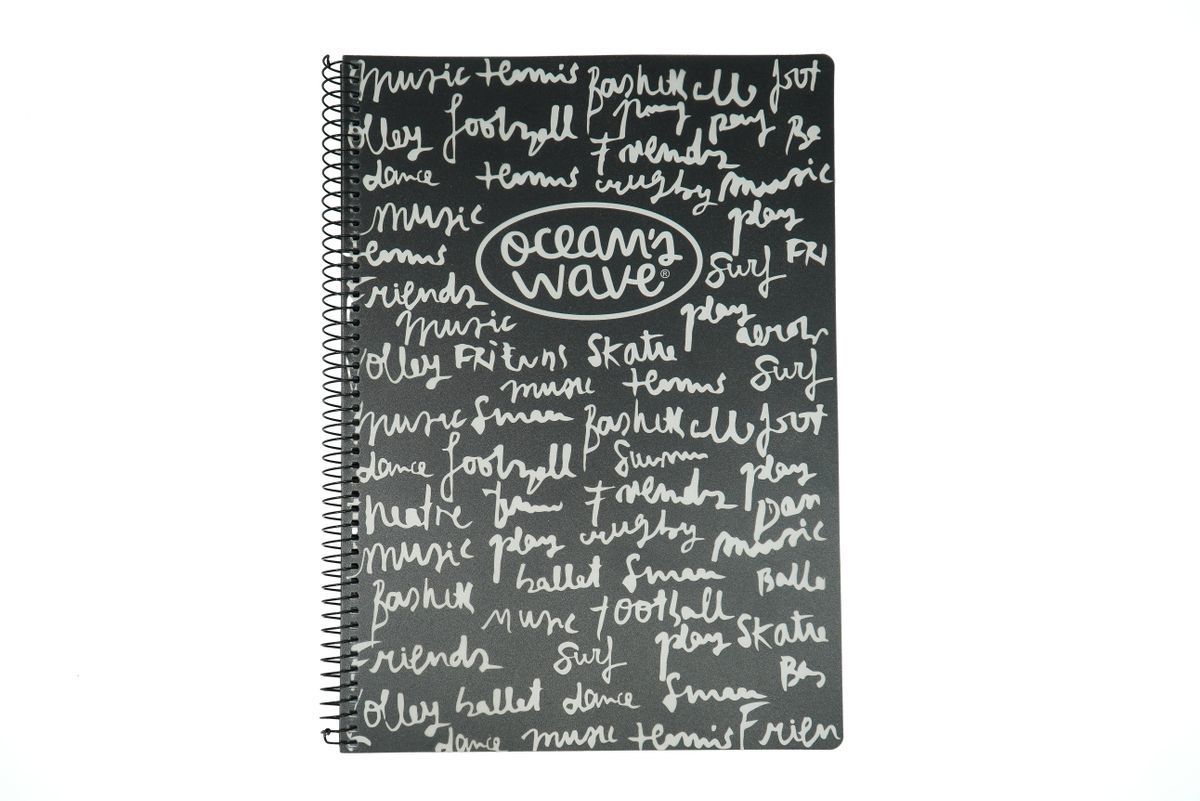 music tennis Baskett all foot
olley football play play Ba
Friends
dance tennis rugby music
music play
ocean's
wave®
tennis Surf FRI
Friends play
music aerob
olley FRiEnDS Skatre
music tennis Surf
music foot
dance football play
heatre Friends Dan
music play rugby music
ballet Balle
Baskett music football
play Skatre
Friends Surf Bas
olley ballet dance
dance music tennis Frien